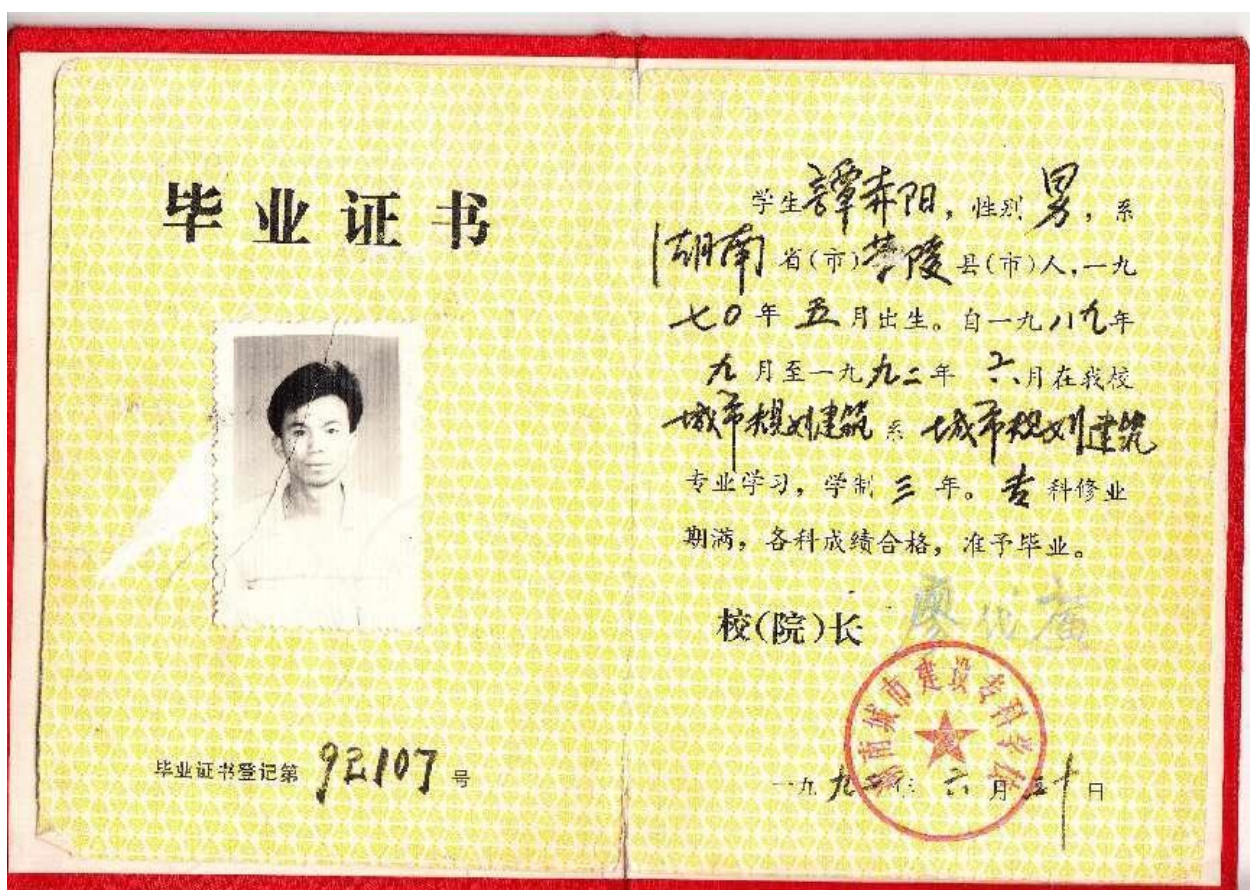 毕业证书
毕业证书登记第 92107 号
学生譚赤阳，性别男，系
湖南省(市)茶陵县(市)人，一九
七0年五月出生。自一九八九年
九月至一九九二年六月在我校
城市规划建筑系城市规划建筑
专业学习，学制三年。专科修业
期满，各科成绩合格，准予毕业。
校(院)长 廖
湖南城市建设专科学校
一九九二年六月三十日